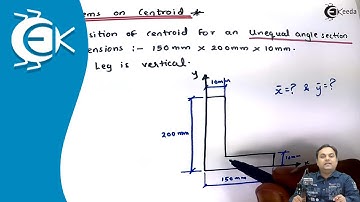 ems on Centroid *
osition of centroid for an Unequal angle section
ensions :- 150mm x 200mm x 10mm.
Leg is vertical.
Ekeeda
y
10mm
x̄ = ? & ȳ = ?
200mm
10mm
x
150mm